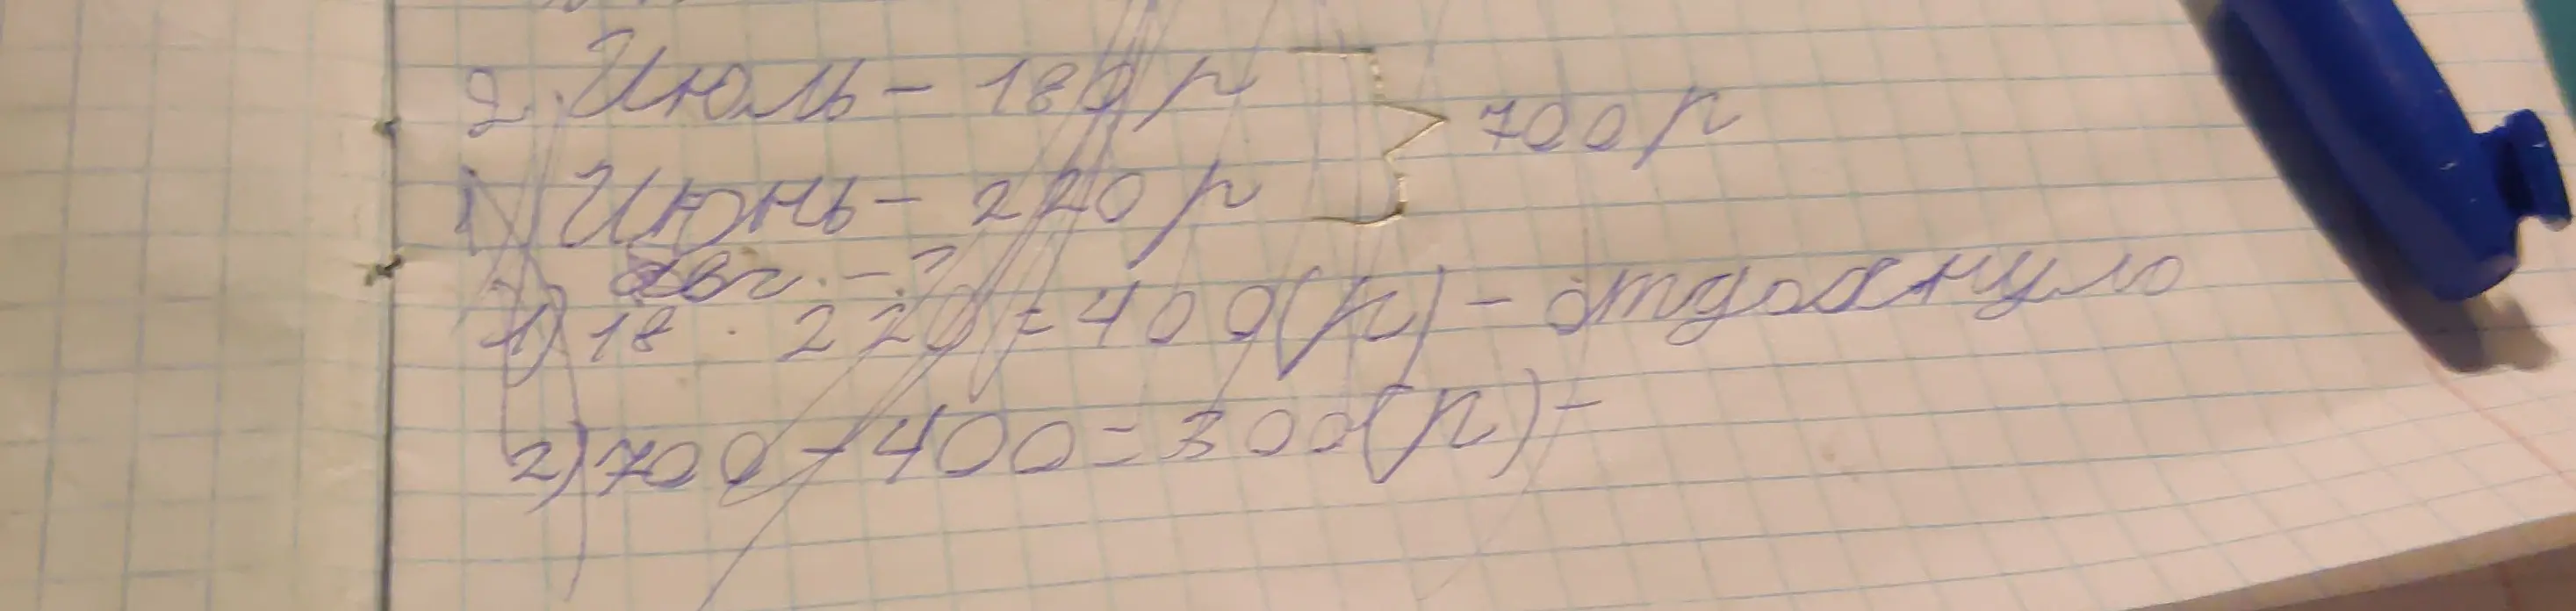 2. Июль - 180 р
700 р
1 Июнь - 220 р
авг. - ?
1) 18 · 220 = 400 (р) - отдохнуло
2) 700 - 400 = 300 (р) -